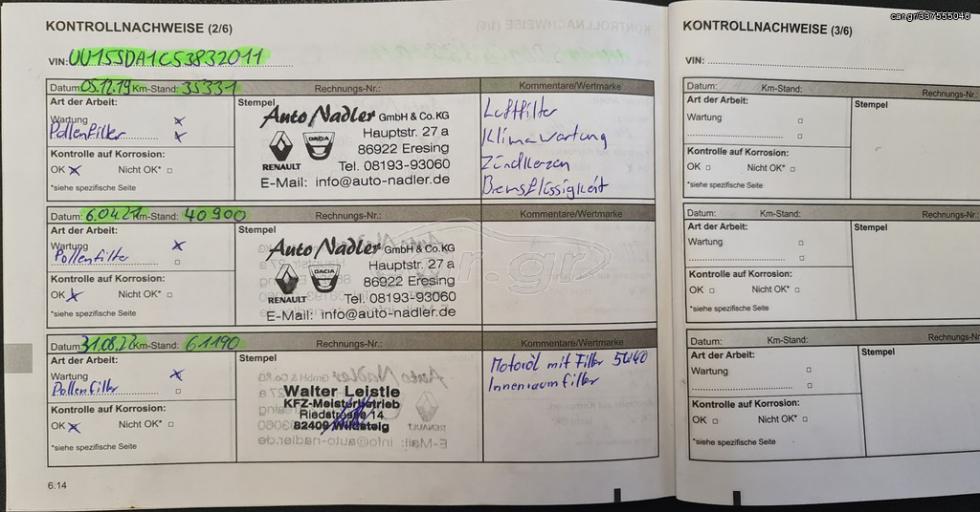 KONTROLLNACHWEISE (2/6)
VIN: UU15SDA1C53832011
Datum: 05.12.19 Km-Stand: 35331 Rechnungs-Nr.: Kommentare/Wertmarke
Art der Arbeit: Stempel
Wartung x
Pollenfilter x
Kontrolle auf Korrosion:
OK x Nicht OK* □
*siehe spezifische Seite
Auto Nadler GmbH & Co.KG
Hauptstr. 27 a
86922 Eresing
Tel. 08193-93060
E-Mail: info@auto-nadler.de
RENAULT
DACIA
Luftfilter
Klimawartung
Zündkerzen
Bremsflüssigkeit
Datum: 6.04.21 Km-Stand: 40900 Rechnungs-Nr.: Kommentare/Wertmarke
Art der Arbeit: Stempel
Wartung x
Pollenfilter □
Kontrolle auf Korrosion:
OK x Nicht OK* □
*siehe spezifische Seite
Auto Nadler GmbH & Co.KG
Hauptstr. 27 a
86922 Eresing
Tel. 08193-93060
E-Mail: info@auto-nadler.de
RENAULT
DACIA
Datum: 31.08.22 Km-Stand: 61190 Rechnungs-Nr.: Kommentare/Wertmarke
Art der Arbeit: Stempel
Wartung x
Pollenfilter □
Kontrolle auf Korrosion:
OK x Nicht OK* □
*siehe spezifische Seite
Walter Leistle
KFZ-Meisterbetrieb
Riedstrasse 14
82409 Wildsteig
Motoröl mit Filter 5W40
Innenraumfilter
6.14
KONTROLLNACHWEISE (3/6)
VIN:
Datum: Km-Stand: Rechnungs-Nr.
Art der Arbeit: Stempel
Wartung □
□
Kontrolle auf Korrosion:
OK □ Nicht OK* □
*siehe spezifische Seite
Datum: Km-Stand: Rechnungs-Nr.
Art der Arbeit: Stempel
Wartung □
□
Kontrolle auf Korrosion:
OK □ Nicht OK* □
*siehe spezifische Seite
Datum: Km-Stand: Rechnungs-Nr
Art der Arbeit: Stempel
Wartung □
□
Kontrolle auf Korrosion:
OK □ Nicht OK* □
*siehe spezifische Seite
car.gr/337555046
car.gr